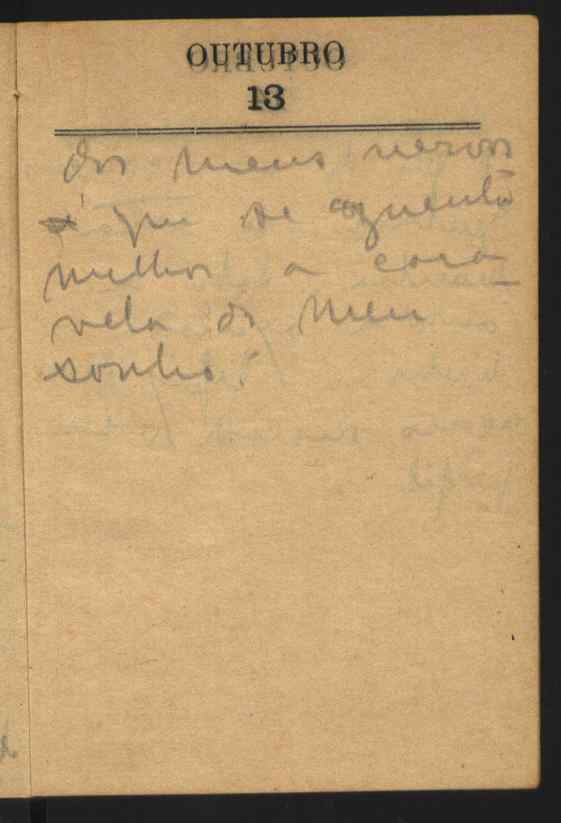 OUTUBRO
13
dos meus nervos
é que se aguenta
melhor a cara
vela do meu
sonho!